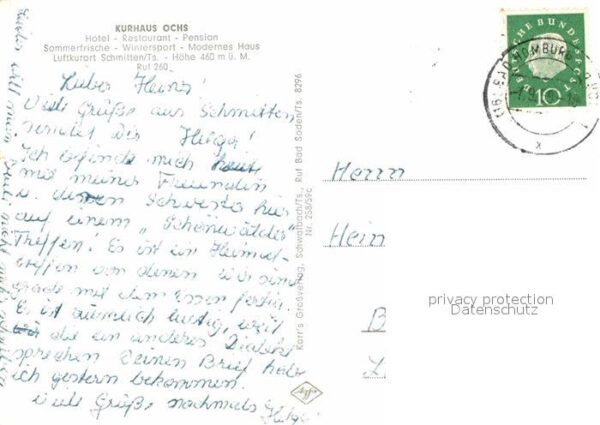 KURHAUS OCHS
Hotel - Restaurant - Pension
Sommerfrische - Wintersport - Modernes Haus
Luftkurort Schmitten/Ts. - Höhe 460 m ü. M.
Ruf 260
Lieber Heinz!
Viele Grüße aus Schmitten
sendet Dir Helga!
Ich befinde mich heute
mit meiner Freundin
u. deren Schwester hier
auf einem „Schönwälder"
Treffen! Es ist ein Heimat-
treffen von denen wir sind
grade mit dem Essen fertig.
Es ist ziemlich lustig, weil
die ein anderes Dialekt
sprechen Deinen Brief habe
ich gestern bekommen.
Viele Grüße nochmals Helga
Karr's Großverlag, Schwalbach/Ts., Ruf Bad Soden/Ts. 8296
Nr. 258/59c
Agfa
DEUTSCHE BUNDESPOST
10
(16) BAD HOMBURG
x
Herrn
Hein
B
L
privacy protection
Datenschutz